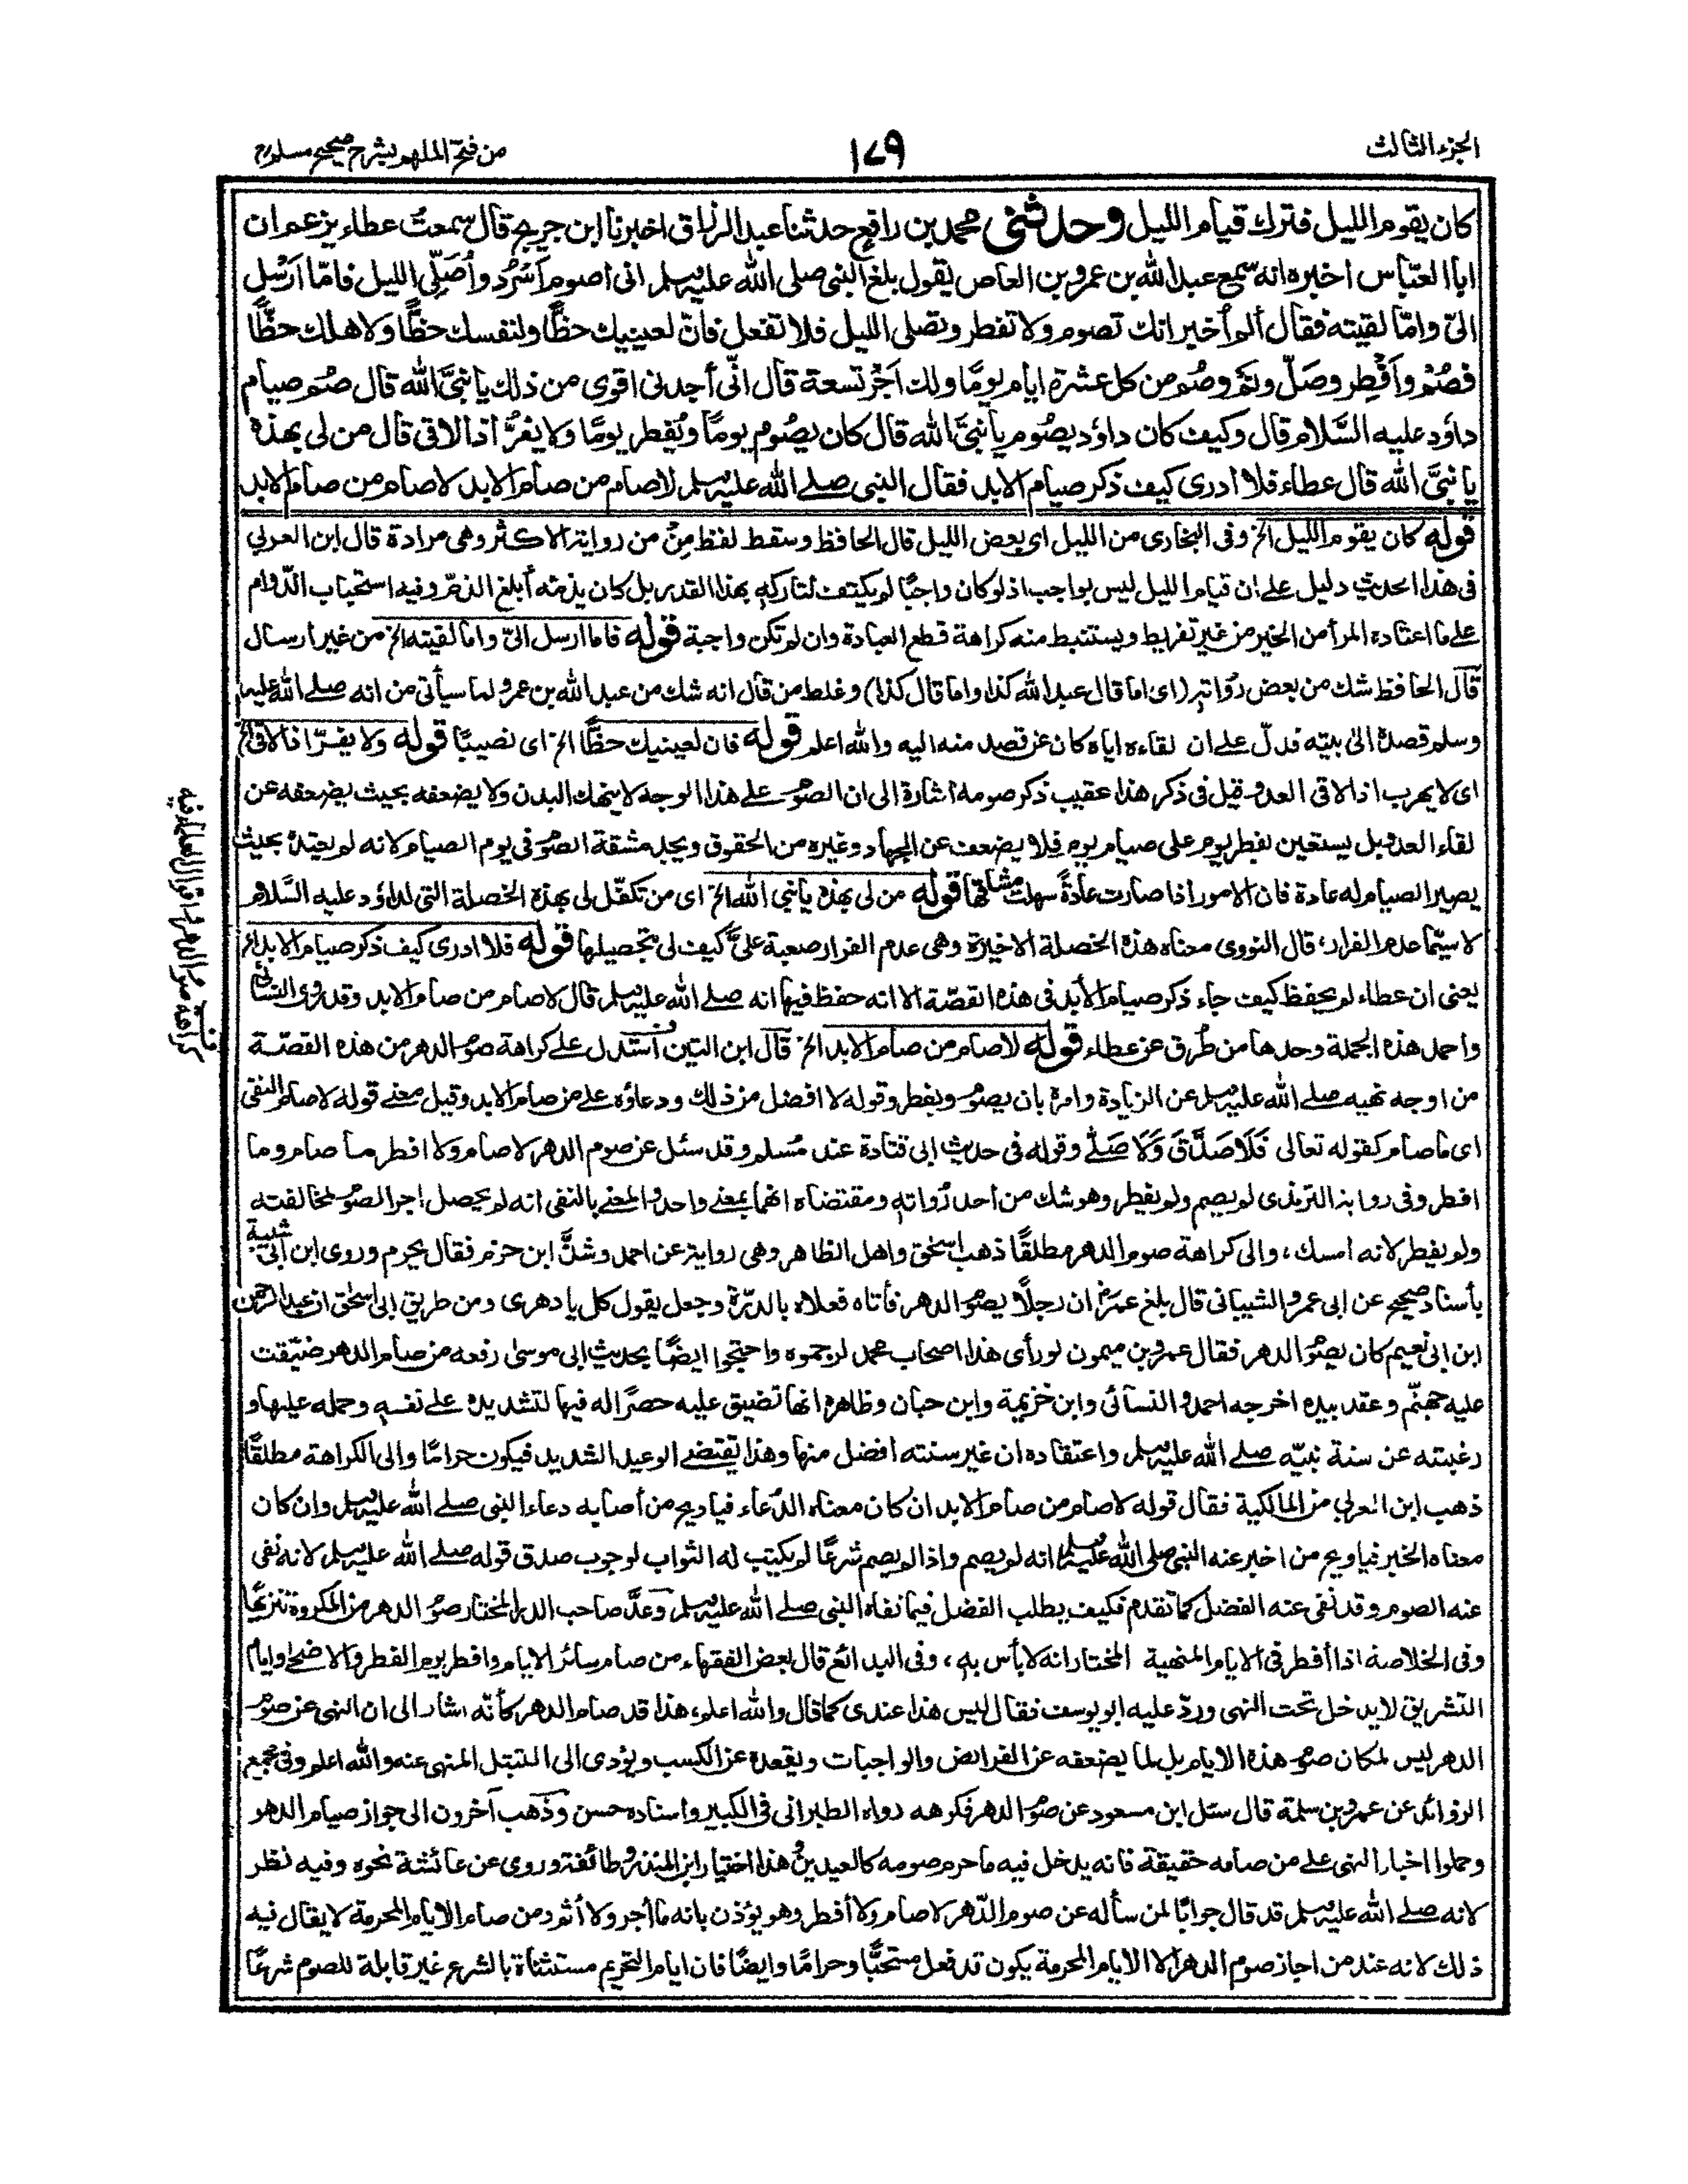 الجزء الثالث
١٧٩
من فتح الملهم بشرح صحيح مسلم
كان يقوم الليل فترك قيام الليل وحدثنى محمد بن رافع حدثنا عبد الرزاق اخبرنا ابن جريج قال سمعتُ عطاء يزعم ان
ابا العبّاس اخبره انه سمع عبد الله بن عمرو بن العاص يقول بلغ النبى صلى الله عليه وسلم انى اصوم اَسْرُد واُصَلِّى الليل فامّا اَرْسَل
الىّ وامّا لقيته فقال ألم اُخبر انك تصوم ولا تفطر وتصلى الليل فلا تفعل فانّ لعينيك حظًّا ولنفسك حظًّا ولاهلك حظًّا
فصُمْ واَفْطِر وصَلّ ونَم وصُم من كل عشرة ايام يومًا ولك اَجْر تسعة قال انّى أجدنى اقوى من ذلك يا نبىَّ الله قال صُم صيام
داؤد عليه السَّلام قال وكيف كان داؤد يصُوم يا نبىَّ الله قال كان يصُوم يومًا ويُفطر يومًا ولا يفرُّ اذا لاقى قال من لى بهذه
يا نبىَّ الله قال عطاء فلا ادرى كيف ذكر صيام الابد فقال النبى صلى الله عليه وسلم لا صام من صام الابد لا صام من صام الابد
قوله كان يقوم الليل الخ وفى البخارى من الليل اى بعض الليل قال الحافظ وسقط لفظ مِنْ من رواية الاكثر وهى مرادة قال ابن العربي
فى هذا الحديث دليل على ان قيام الليل ليس بواجب اذ لو كان واجبًا لم يكتف لتاركه بهذا القدر بل كان يذمه أبلغ الذمّ وفيه استحباب الدّوام
على ما اعتاده المرأ من الخير من غير تفريط ويستنبط منه كراهة قطع العبادة وان لم تكن واجبة قوله فاما ارسل الىّ واما لقيته الخ من غير ارسال
قال الحافظ شك من بعض رُواته (اى اما قال عبد الله كذا واما قال كذا) وغلط من قال انه شك من عبد الله بن عمرو لما سيأتى من انه صلى الله عليه
وسلم قصده الى بيته فدلّ على ان لقاءه اياه كان عن قصد منه اليه والله اعلم قوله فان لعينيك حظًّا الخ اى نصيبًا قوله ولا يفرّ اذا لاقى الخ
اى لا يهرب اذا لاقى العدو قيل فى ذكر هذا عقيب ذكر صومه اشارة الى ان الصوم على هذا الوجه لا ينهك البدن ولا يضعفه بحيث يضعفه عن
لقاء العدو بل يستعين بفطر يوم على صيام يوم فلا يضعف عن الجهاد وغيره من الحقوق ويجد مشقة الصوم فى يوم الصيام لانه لم يعتده بحيث
يصير الصيام له عادة فان الامور اذا صارت عادةً سهلت مشاقها قوله من لى بهذه يا نبي الله الخ اى من تكفّل لى بهذه الخصلة التى لداؤد عليه السّلام
لاسيّما عدم الفرار؛ قال النووى معناه هذه الخصلة الاخيرة وهى عدم الفرار صعبة علىَّ كيف لى بتحصيلها قوله فلا ادرى كيف ذكر صيام الابد الخ
يعنى ان عطاء لم يحفظ كيف جاء ذكر صيام الأبد فى هذه القصّة الا انه حفظ فيها انه صلى الله عليه وسلم قال لا صام من صام الابد وقد روى النسائى
واحمد هذه الجملة وحدها من طُرق عن عطاء قوله لا صام من صام الابد الخ قال ابن التين اُستدل على كراهة صوم الدهر من هذه القصّة
من اوجه نهيه صلى الله عليه وسلم عن الزيادة وامره بان يصوم ويفطر وقوله لا افضل من ذلك ودعاؤه على من صام الابد وقيل معنى قوله لا صام النفى
اى ما صام كقوله تعالى فَلَا صَدَّقَ وَلَا صَلّٰى وقوله فى حديث ابى قتادة عند مُسلم وقد سئل عن صوم الدهر لا صام ولا افطر ما صام وما
افطر وفى رواية الترمذى لم يصم ولم يفطر وهو شك من احد رُواته ومقتضاه انهما بمعنى واحد والمعنى بالنفى انه لم يحصل اجر الصوم لمخالفته
ولم يفطر لانه امسك، والى كراهة صوم الدهر مطلقًا ذهب اسحٰق واهل الظاهر وهى رواية عن احمد وشذَّ ابن حزم فقال يحرم وروى ابن ابى شيبة
بأسناد صحيح عن ابى عمرو الشيبانى قال بلغ عمرَ ان رجلًا يصوم الدهر فأتاه فعلاه بالدرّة وجعل يقول كل يا دهرى ومن طريق ابى اسحٰق ان عبد الرحمن
ابن ابى نعيم كان يصوم الدهر فقال عمرو بن ميمون لو رأى هذا اصحاب محمد لرجموه واحتجوا ايضًا بحديث ابى موسىٰ رفعه من صام الدهر ضيّقت
عليه جهنّم وعقد بيده اخرجه احمد والنسائى وابن خزيمة وابن حبان وظاهره انها تضيق عليه حصرًا له فيها لتشديده على نفسه وحمله عليها و
رغبته عن سنة نبيّه صلى الله عليه وسلم واعتقاده ان غير سنته افضل منها وهذا يقتضى الوعيد الشديد فيكون حرامًا والى الكراهة مطلقًا
ذهب ابن العربي من المالكية فقال قوله لا صام من صام الابد ان كان معناه الدّعاء فيا ويح من أصابه دعاء النبى صلى الله عليه وسلم وان كان
معناه الخبر فيا ويح من اخبر عنه النبى صلى الله عليه وسلم انه لم يصم واذا لم يصم شرعًا لم يكتب له الثواب لوجوب صدق قوله صلى الله عليه وسلم لانه نفى
عنه الصوم وقد نفى عنه الفضل كما تقدم فكيف يطلب الفضل فيما نفاه النبى صلى الله عليه وسلم وعدَّ صاحب الدر المختار صوم الدهر من المكروه تنزيهًا
وفى الخلاصة اذا أفطر فى الايام المنهية المختار انه لا بأس به، وفى البدائع قال بعض الفقهاء من صام سائر الايام وافطر يوم الفطر والاضحى وايام
التشريق لا يدخل تحت النهى وردّ عليه ابو يوسف فقال ليس هذا عندى كما قال والله اعلم، هذا قد صام الدهر كأنّه اشار الى ان النهى عن صوم
الدهر ليس لمكان صوم هذه الايام بل لما يضعفه عن الفرائض والواجبات ويقعده عن الكسب ويؤدى الى التبتل المنهى عنه والله اعلم وفى مجمع
الزوائد عن عمرو بن سلمة قال سئل ابن مسعود عن صوم الدهر فكرهه رواه الطبرانى فى الكبير واسناده حسن وذهب آخرون الى جواز صيام الدهر
وحملوا اخبار النهى على من صامه حقيقة فانه يدخل فيه ما حرم صومه كالعيدين وهذا اختيار ابن المنذر وطائفة وروى عن عائشة نحوه وفيه نظر
لانه صلى الله عليه وسلم قد قال جوابًا لمن سأله عن صوم الدّهر لا صام ولا أفطر وهو يؤذن بانه ما أجر ولا أثم ومن صام الايام المحرمة لا يقال فيه
ذلك لانه عند من اجاز صوم الدهر الا الايام المحرمة يكون قد فعل مستحبًّا وحرامًا وايضًا فان ايام التحريم مستثناة بالشرع غير قابلة للصوم شرعًا
كراهة صوم الدهر واقوال العلماء فيه